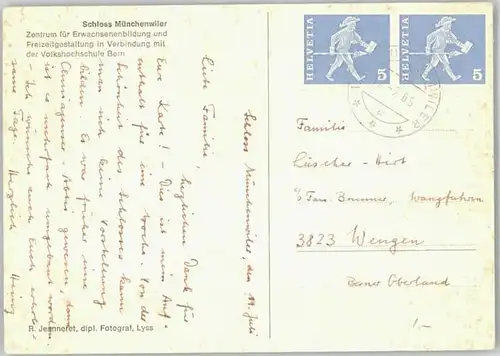 Schloss Münchenwiler
Zentrum für Erwachsenenbildung und
Freizeitgestaltung in Verbindung mit
der Volkshochschule Bern
Schloss Münchenwiler, den 11. Juli
Liebe Familie,
herzlichen Dank für
Eure Karte! – Dies ist mein Auf-
enthalt für eine Woche. Von der
Schönheit des Schlosses kann
man sich keine Vorstellung
bilden. Es war früher eine
Cluniazenser-Abtei gewesen, dann
ist es mehrfach umgebaut worden.
– Ich wünsche auch Euch erhol-
same Tage. Herzlich Heinz
R. Jeanneret, dipl. Fotograf, Lyss
HELVETIA 5
HELVETIA 5
Familie
Lüscher-Hirt
c/o Fam. Brunner,
3823 Wengen
Berner Oberland
1.-